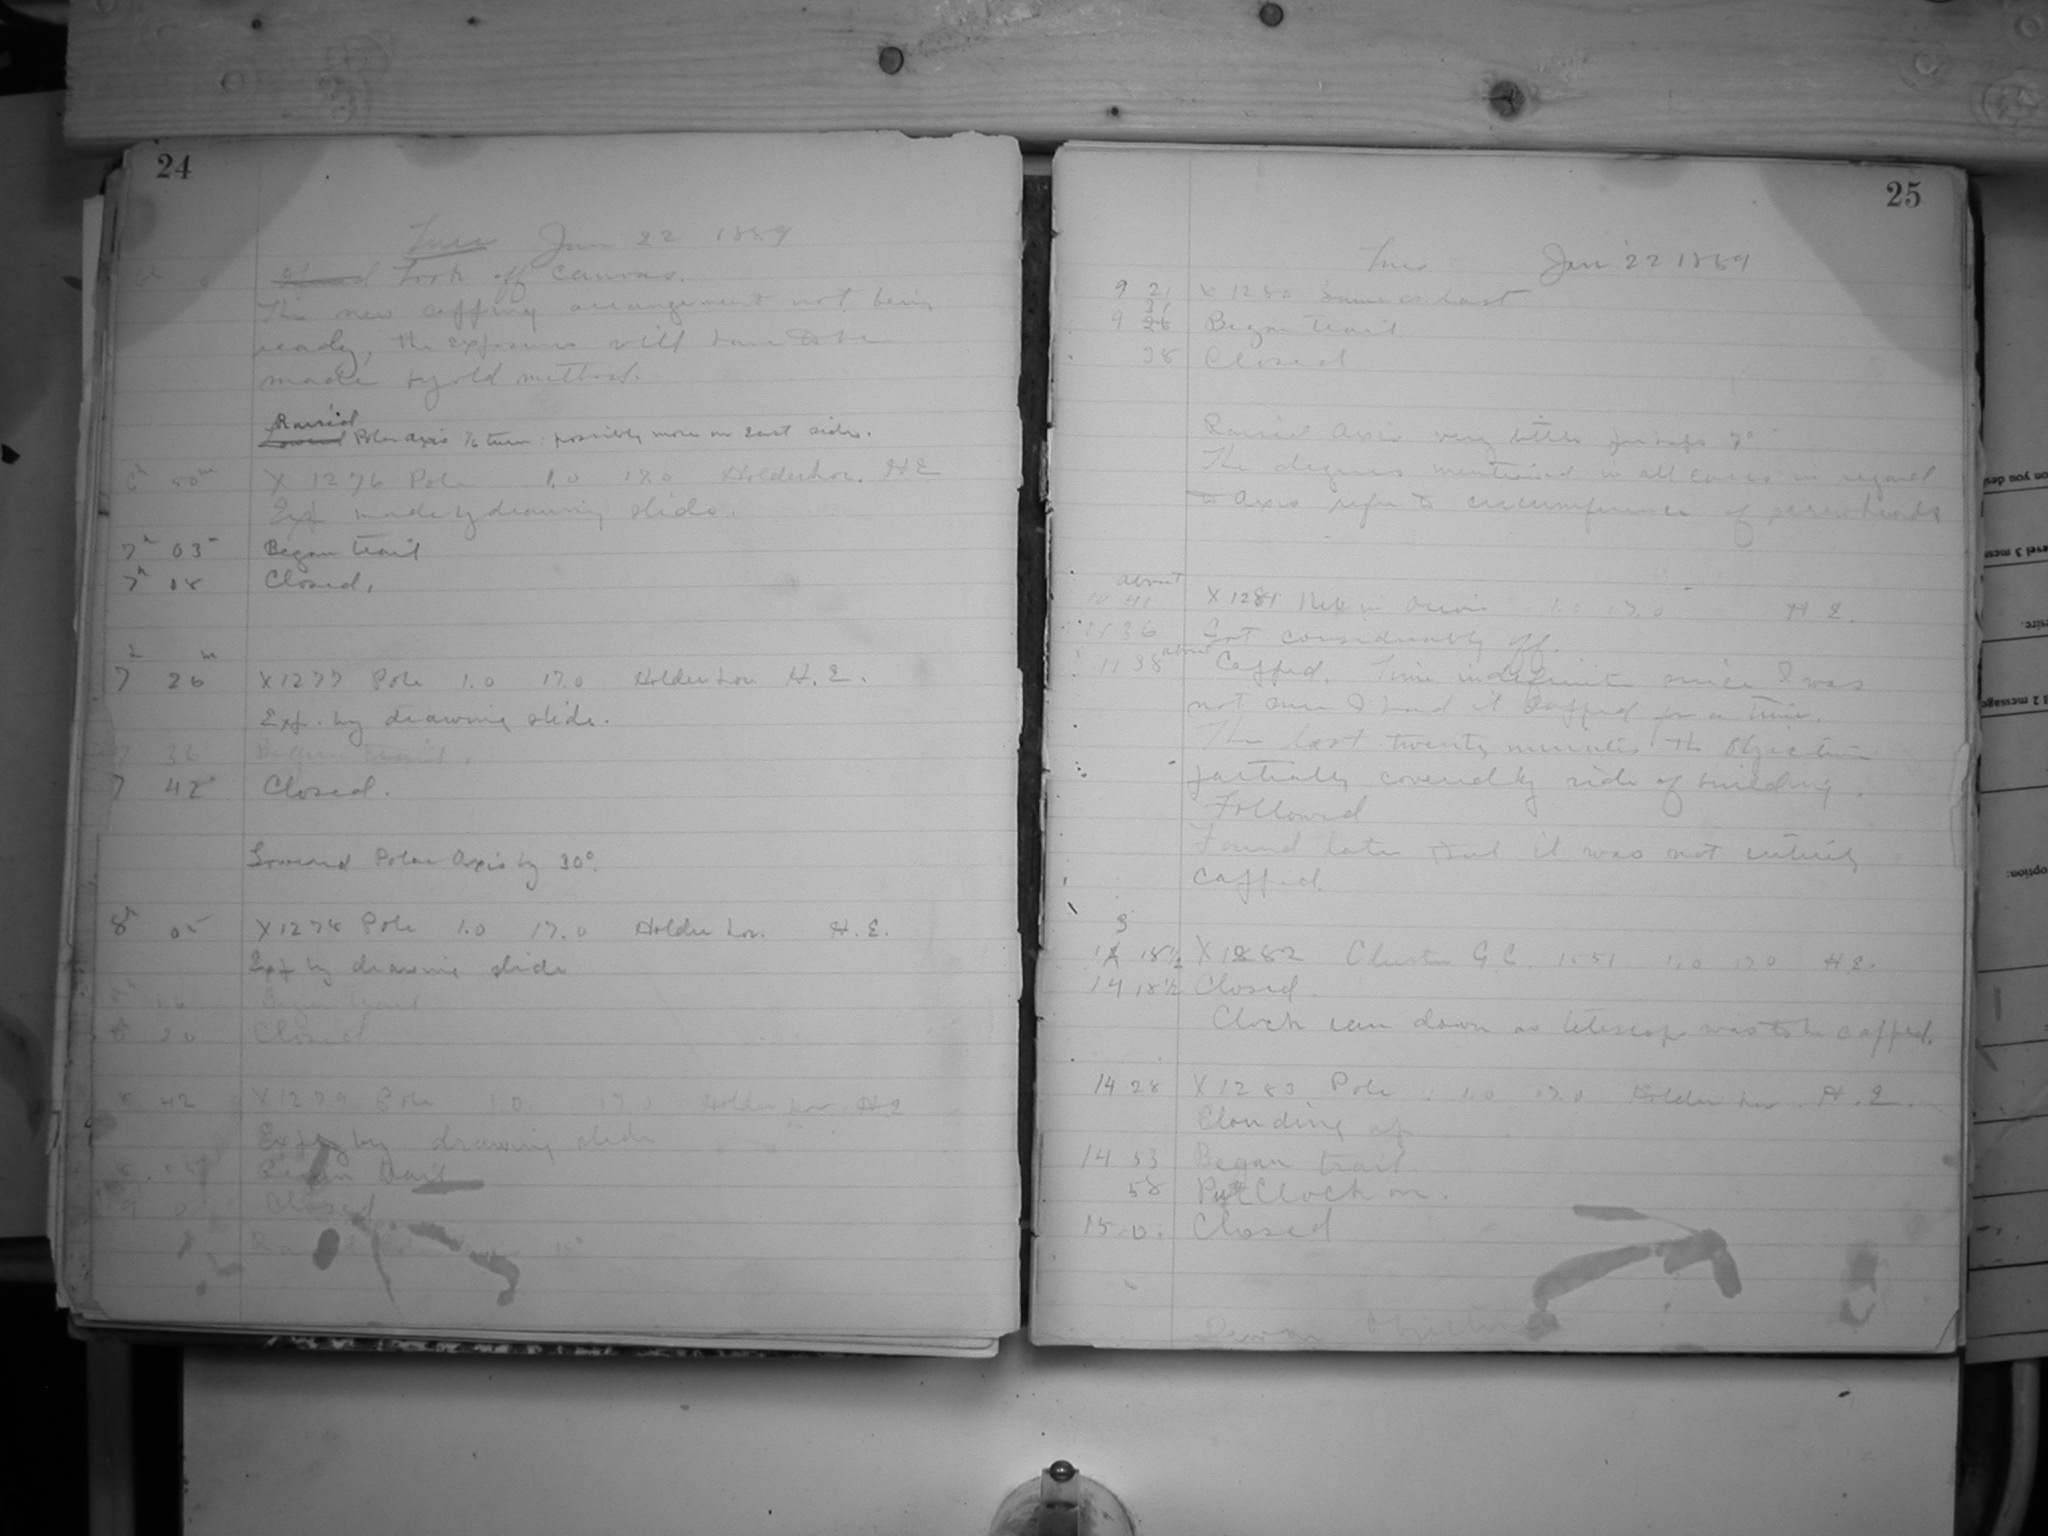 24
Tues Jan 22 1889
Took off canvas.
The new capping arrangement not being
ready, the exposures will have to be
made by old method.
Raised
Lowered Polar axis 1/6 turn: possibly more on east side.
6h 50m X 1276 Pole 1.0 17.0 Holder hor. H.E.
Exp made by drawing slide.
7h 03m Began trail
7h 08 Closed.
h m
7 26 X 1277 Pole 1.0 17.0 Holder hor H. E.
Exp. by drawing slide.
7 36 Began trail.
7 42 Closed.
Lowered Polar Axis by 30°.
8h 05 X 1278 Pole 1.0 17.0 Holder hor. H. E.
Exp by drawing slide
16 Began trail
8 20 Closed
8 42 X 1279 Pole 1.0 17.0 Holder hor. H.E
Exp by drawing slide
Began trail
9 Closed
25
Tues Jan 22 1889
9 21 X 1280 Same as last
31
9 26 Began trail
38 Closed
Raised Axis very little perhaps 7°
The degrees mentioned in all cases in regard
to axis refer to circumference of screwheads
about
10 41 X 1281 Neb in Orion 1.0 17.0 H E.
11 36 Got considerably off.
11 38 about Capped. Time indefinite since I was
not sure I had it capped for a time.
The last twenty minutes the Objective
partially covered by side of building.
Followed
Found later that it was not entirely
capped.
3
12 18½ X 1282 Cluster G.C. 1551 1.0 17.0 H.E.
14 18½ Closed.
Clock ran down as telescope was to be capped.
14 28 X 1283 Pole 1.0 17.0 Holder hor. H. E.
Clouding up
14 53 Began trail.
58 Put Clock on.
15 0. Closed
Dew on Objective